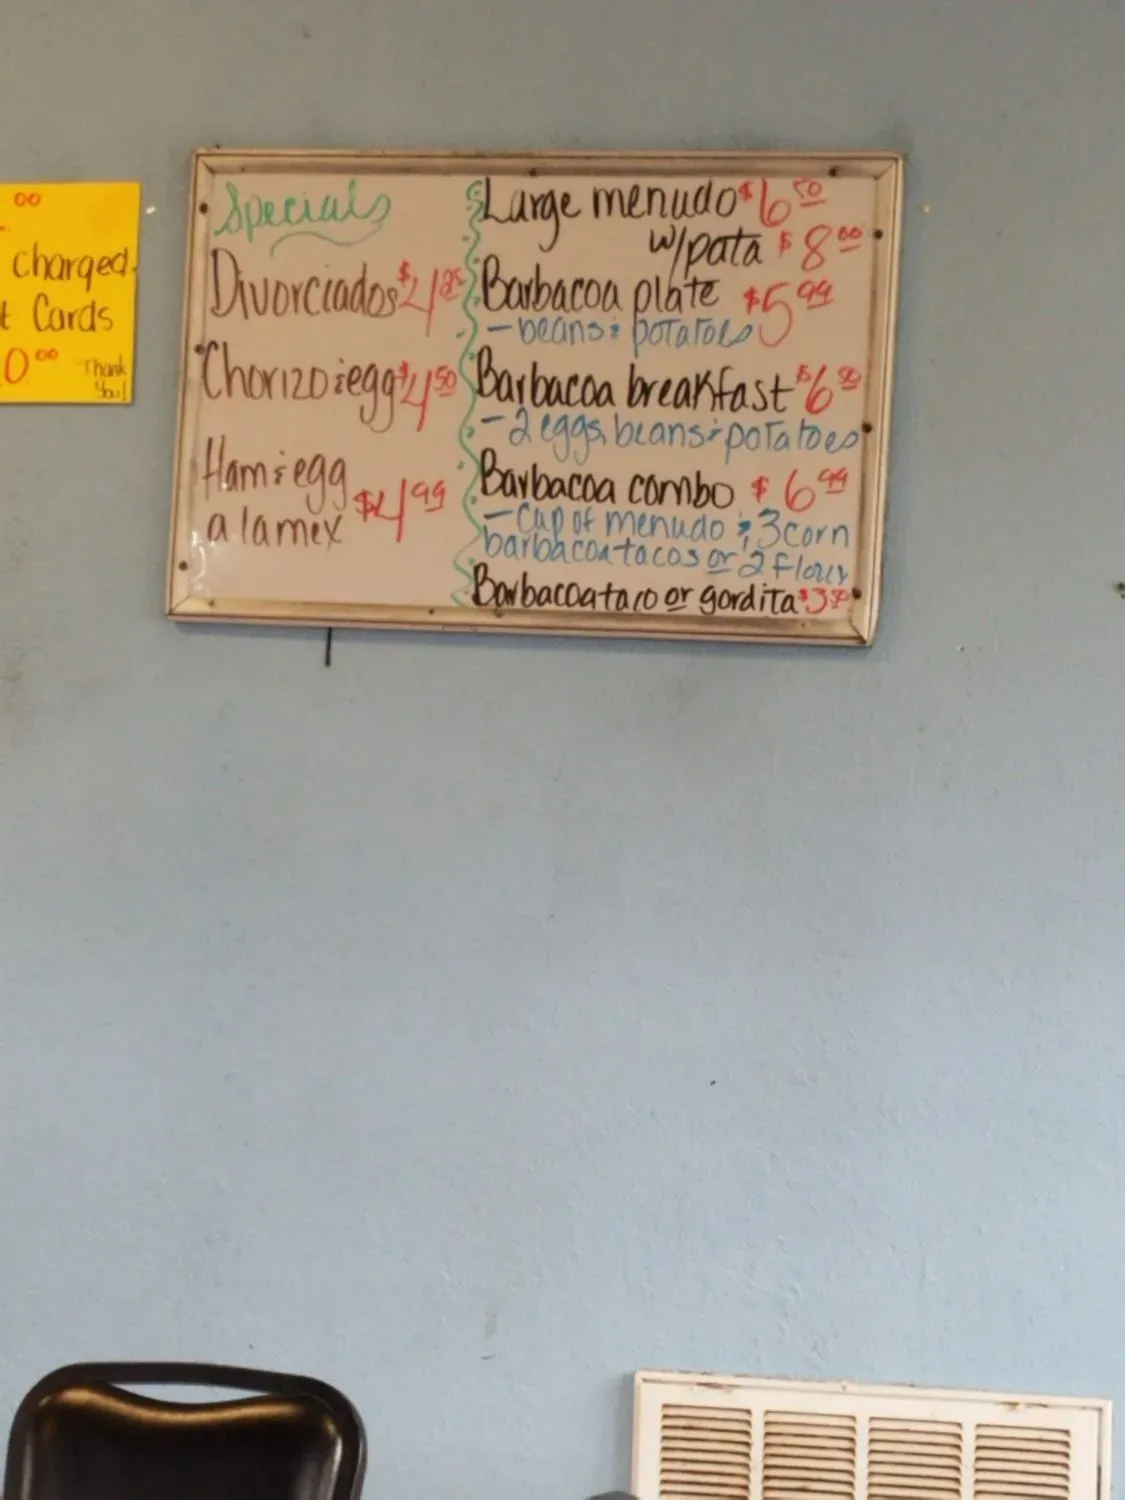 00
charged.
t Cards
0.00
Thank
You!
Specials
Divorciados $4.25
Chorizo & egg $4.50
Ham & egg
a la mex $4.99
Large menudo $6.50
w/pata $8.00
Barbacoa plate $5.99
- beans & potatoes
Barbacoa breakfast $6.50
- 2 eggs, beans & potatoes
Barbacoa combo $6.99
- cup of menudo & 3 corn
barbacoa tacos or 2 flour
Barbacoa taco or gordita $3.50